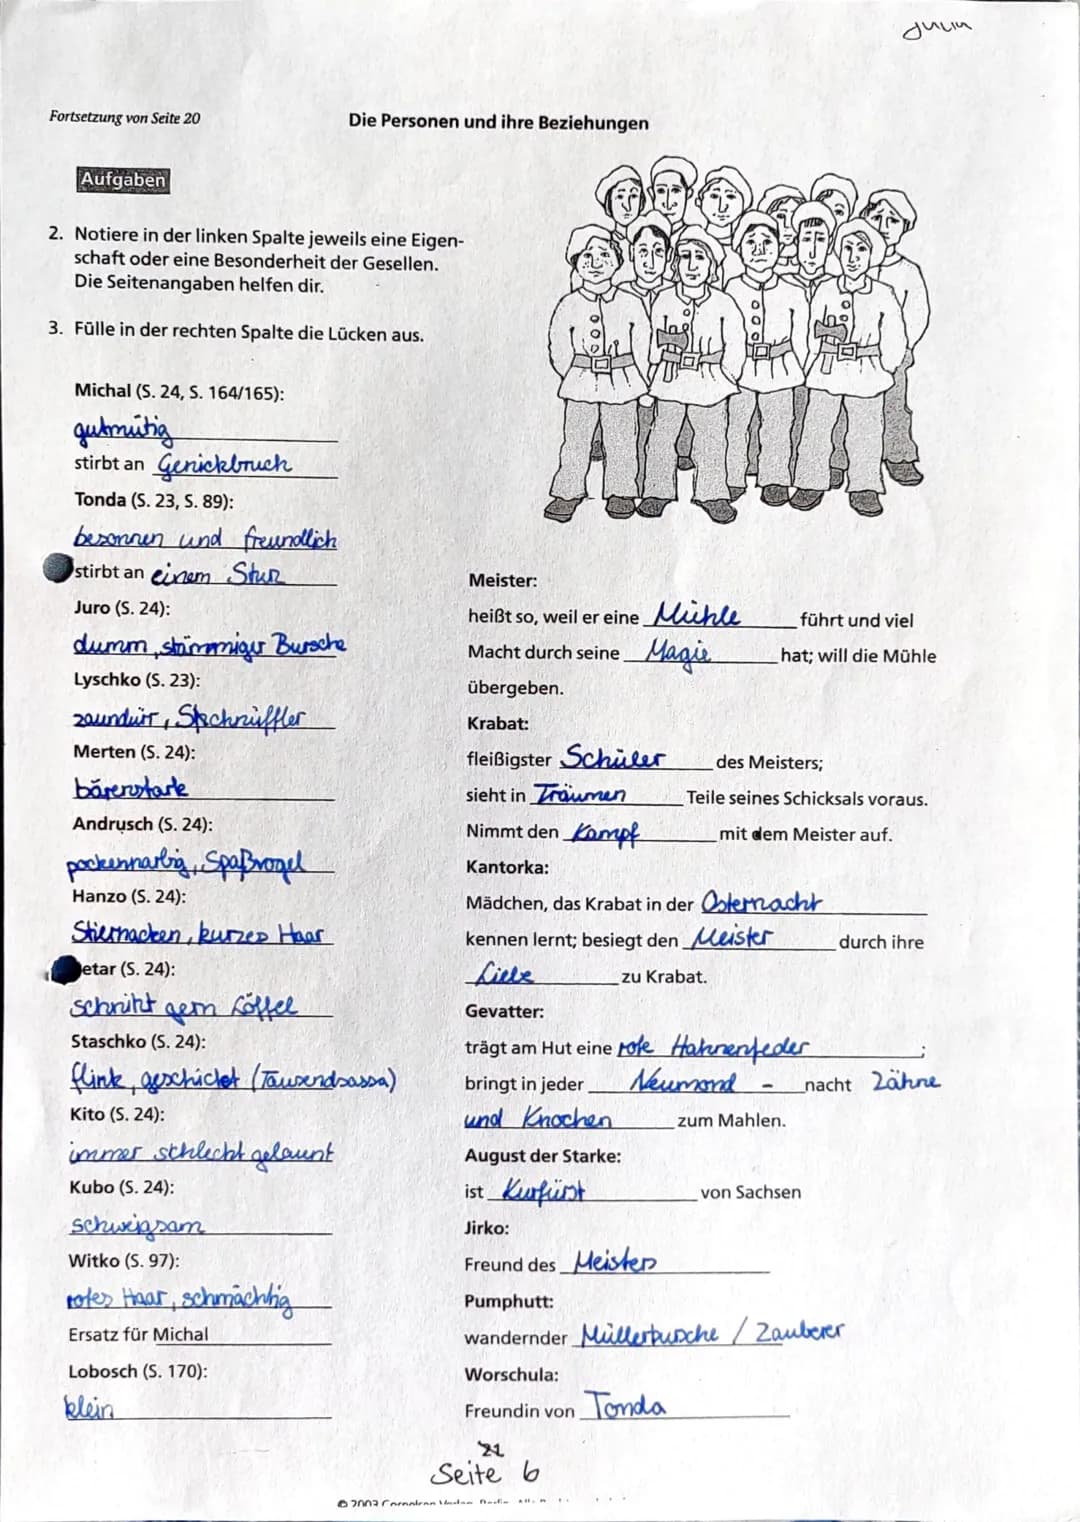 Julia
Fortsetzung von Seite 20
Die Personen und ihre Beziehungen
Aufgaben
2. Notiere in der linken Spalte jeweils eine Eigen-
schaft oder eine Besonderheit der Gesellen.
Die Seitenangaben helfen dir.
3. Fülle in der rechten Spalte die Lücken aus.
Michal (S. 24, S. 164/165):
gutmütig
stirbt an Genickbruch
Tonda (S. 23, S. 89):
besonnen und freundlich
stirbt an einem Sturz
Juro (S. 24):
dumm, stämmiger Bursche
Lyschko (S. 23):
zaundürr, Stschnüffler
Merten (S. 24):
bärenstark
Andrusch (S. 24):
pockennarbig, Spaßvogel
Hanzo (S. 24):
Stiernacken, kurzes Haar
etar (S. 24):
schnitzt gern Löffel
Staschko (S. 24):
flink, geschickt (Tausendsassa)
Kito (S. 24):
immer schlecht gelaunt
Kubo (S. 24):
schweigsam
Witko (S. 97):
rotes Haar, schmächtig
Ersatz für Michal
Lobosch (S. 170):
klein
Meister:
heißt so, weil er eine Mühle führt und viel
Macht durch seine Magie hat; will die Mühle
übergeben.
Krabat:
fleißigster Schüler des Meisters;
sieht in Träumen Teile seines Schicksals voraus.
Nimmt den Kampf mit dem Meister auf.
Kantorka:
Mädchen, das Krabat in der Osternacht
kennen lernt; besiegt den Meister durch ihre
Liebe zu Krabat.
Gevatter:
trägt am Hut eine rote Hahnenfeder;
bringt in jeder Neumond - nacht Zähne
und Knochen zum Mahlen.
August der Starke:
ist Kurfürst von Sachsen
Jirko:
Freund des Meisters
Pumphutt:
wandernder Müllerbursche / Zauberer
Worschula:
Freundin von Tonda
21
Seite 6
© 2003 Cornelsen Verlag, Berlin.